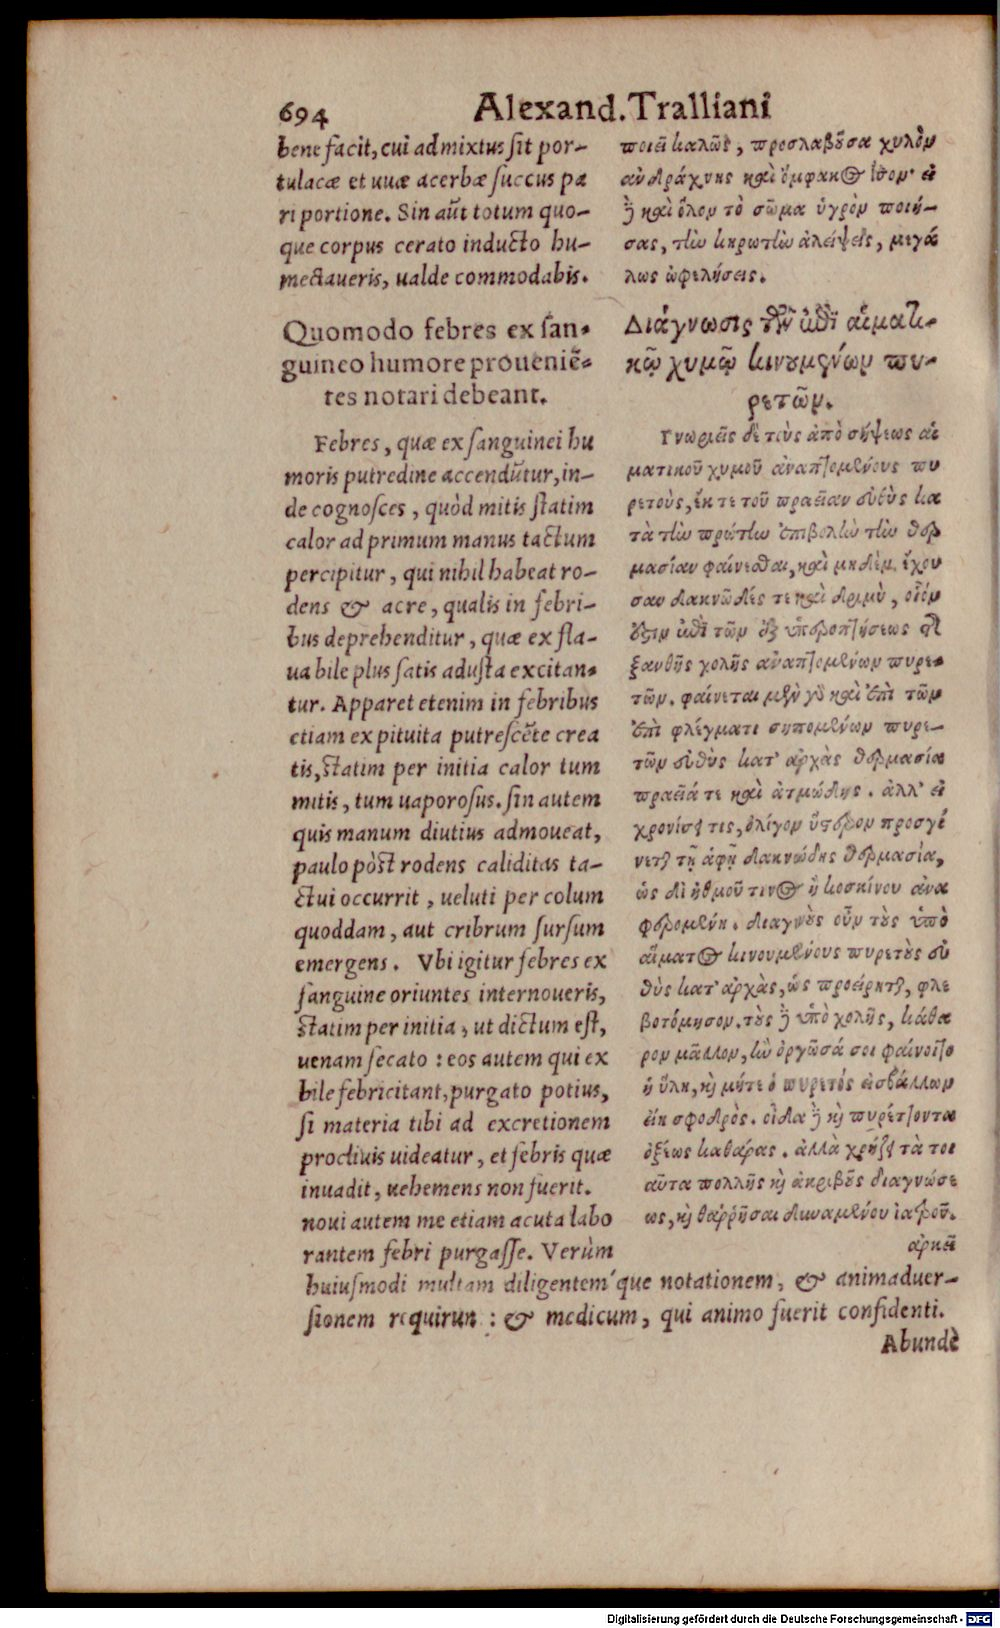 694 Alexand. Tralliani
bene facit, cui admixtus ſit por-
tulacæ et uuæ acerbæ ſuccus pa
ri portione. Sin aũt totum quo-
que corpus cerato inducto hu-
mectaueris, ualde commodabis.
Quomodo febres ex ſan-
guineo humore prouenie͂-
tes notari debeant.
Febres, quæ ex ſanguinei hu
moris putredine accendũtur, in-
de cognoſces, quòd mitis ſtatim
calor ad primum manus tactum
percipitur, qui nihil habeat ro-
dens & acre, qualis in febri-
bus deprehenditur, quæ ex fla-
ua bile plus ſatis aduſta excitan-
tur. Apparet etenim in febribus
etiam ex pituita putreſce͂te crea
tis, ſtatim per initia calor tum
mitis, tum uaporoſus. ſin autem
quis manum diutius admoueat,
paulo pòſt rodens caliditas ta-
ctui occurrit, ueluti per colum
quoddam, aut cribrum ſurſum
emergens. Vbi igitur febres ex
ſanguine oriuntes internoueris,
ſtatim per initia, ut dictum eſt,
uenam ſecato: eos autem qui ex
bile febricitant, purgato potius,
ſi materia tibi ad excretionem
procliuis uideatur, et febris quæ
inuadit, uehemens non fuerit.
noui autem me etiam acuta labo
rantem febri purgaſſe. Verùm
huiuſmodi multam diligentem´que notationem, & animaduer-
ſionem requirun : & medicum, qui animo fuerit confidenti.
Abundè
ποιεῖ καλῶς, προσλαβοῦσα χυλὸν
ἀνδράχνης καὶ ὄμφακος ἴσον. εἰ
δὲ καὶ ὅλον τὸ σῶμα ὑγρὸν ποιή-
σας, τὴν κηρωτὴν ἀλείψεις, μεγά
λως ὠφελήσεις.
Διάγνωσις τῶν ἐπὶ αἱματι-
κῷ χυμῷ κινουμένων πυ-
ρετῶν.
Γνωριεῖς δὲ τοὺς ἀπὸ σήψεως αἱ
ματικοῦ χυμοῦ ἀναπτομένους πυ
ρετοὺς, ἔκ τε τοῦ πραεῖαν εὐθὺς κα
τὰ τὴν πρώτην ἐπιβολὴν τὴν θερ
μασίαν φαίνεσθαι, καὶ μηδὲν ἔχου
σαν δακνῶδές τε καὶ δριμὺ, οἷόν
ἐστιν ἐπὶ τῶν ἐξ ὑπεροπτήσεως τῆς
ξανθῆς χολῆς ἀναπτομένων πυρε-
τῶν. φαίνεται μὲν γὰρ καὶ ἐπὶ τῶν
ἐπὶ φλέγματι σηπομένων πυρε-
τῶν εὐθὺς κατ' ἀρχὰς θερμασία
πραεῖά τε καὶ ἀτμώδης. ἀλλ' εἰ
χρονίσει τις, ὀλίγον ὕστερον προσγί
νεται τῇ ἁφῇ δακνώδης θερμασία,
ὡς δι ἠθμοῦ τινος ἢ κοσκίνου ἀνα
φερομένη. διαγνοὺς οὖν τοὺς ὑπὸ
αἵματος κινουμένους πυρετοὺς εὐ
θὺς κατ' ἀρχὰς, ὡς προείρηται, φλε
βοτόμησον. τοὺς δὲ ὑπὸ χολῆς, κάθα
ρον μᾶλλον, ἢν ὀργῶσά σοι φαίνοιτο
ἡ ὕλη, καὶ μήτε ὁ πυρετός εἰσβάλλων
εἴη σφοδρὸς. οἶδα δὲ καὶ πυρέττοντα
ὀξέως καθάρας. ἀλλὰ χρήζει τὰ τοι
αῦτα πολλῆς καὶ ἀκριβοῦς διαγνώσε
ως, καὶ θαῤῥῆσαι δυναμένου ἰατροῦ.
ἀρκεῖ
Digitalisierung gefördert durch die Deutsche Forschungsgemeinschaft - DFG